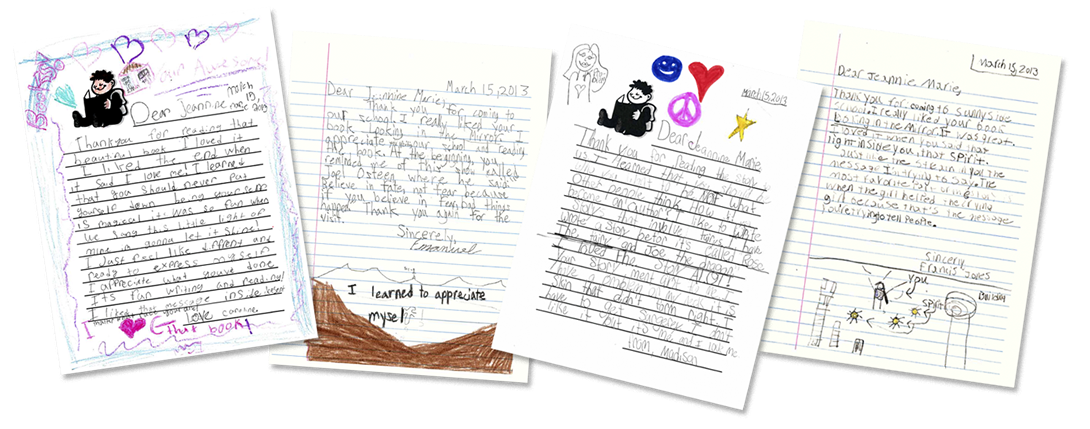 Books
our Awesome
march
15
2013
Dear Jeannine
Thank you for reading that
beautiful book I loved it
I liked the end when
it said I love me. I learned
that you should never put
yourself down being yourself
is magical it was so fun when
we song this little light of
mine im gonna let it shine!
I Just feel like diffrent and
ready to express myself
I appreciate what you've done
Its fun writing and reading!
I liked that message inside
love
I
That book!
March 15, 2013
Dear Jeannine Marie,
Thank you for coming to
our school I really liked your
book Looking in the Mirror. I
appreciate school and reading
the book. At the beginning, you
reminded me of this show called
Joel Osteen where he said
believe in fate, not fear because
if you believe in fear, bad things
happen. Thank you again for the
visit.
Sincerely,
Emanuel
I learned to appreciate
myself
March 15, 2013
Dear Jeannine Marie
Thank you for Reading the story to
us I learned that you should
Other people think How what
being an author? I like to write
Story that involve things I have
wrote! Story
The fairy and Joe the dragon
I loved the story Alot!
Your story ment alot to me I
have a problem my was it is
skin that didn't form right I
have to get surgery I don't
like it but it's me and I like me
from, Madison
March 15, 2013
Dear Jeannie Marie,
Thank you for coming to sunnyside
school I really liked your book
Loking in the Mirror. It was great.
I loved it when you said that
light inside you, that spirit.
Just like the steam is you the
message I'm trying to say. The
most favorite part I liked
when the girl helped the crying
girl because that's the message
your trying to tell people.
Sincerly
Francis Jones
You
Spirit
Building